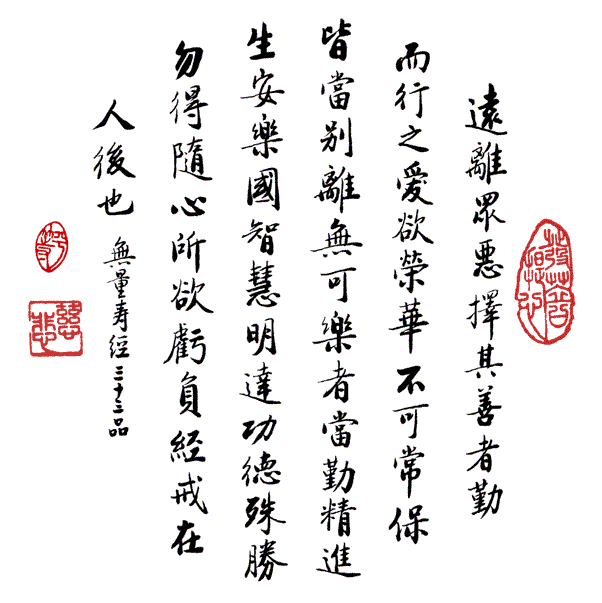 遠離眾惡擇其善者勤
而行之愛欲榮華不可常保
皆當別離無可樂者當勤精進
生安樂國智慧明達功德殊勝
勿得隨心所欲虧負經戒在
人後也
無量寿經三十三品
發菩提心
慈悲